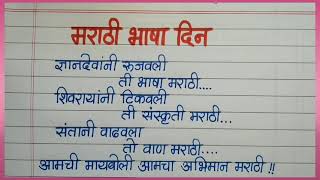 मराठी भाषा दिन
ज्ञानदेवांनी रुजवली
ती भाषा मराठी....
शिवरायांनी टिकवली
ती संस्कृती मराठी...
संतानी वाढवला
तो वाण मराठी....
आमची मायबोली आमचा अभिमान मराठी !!